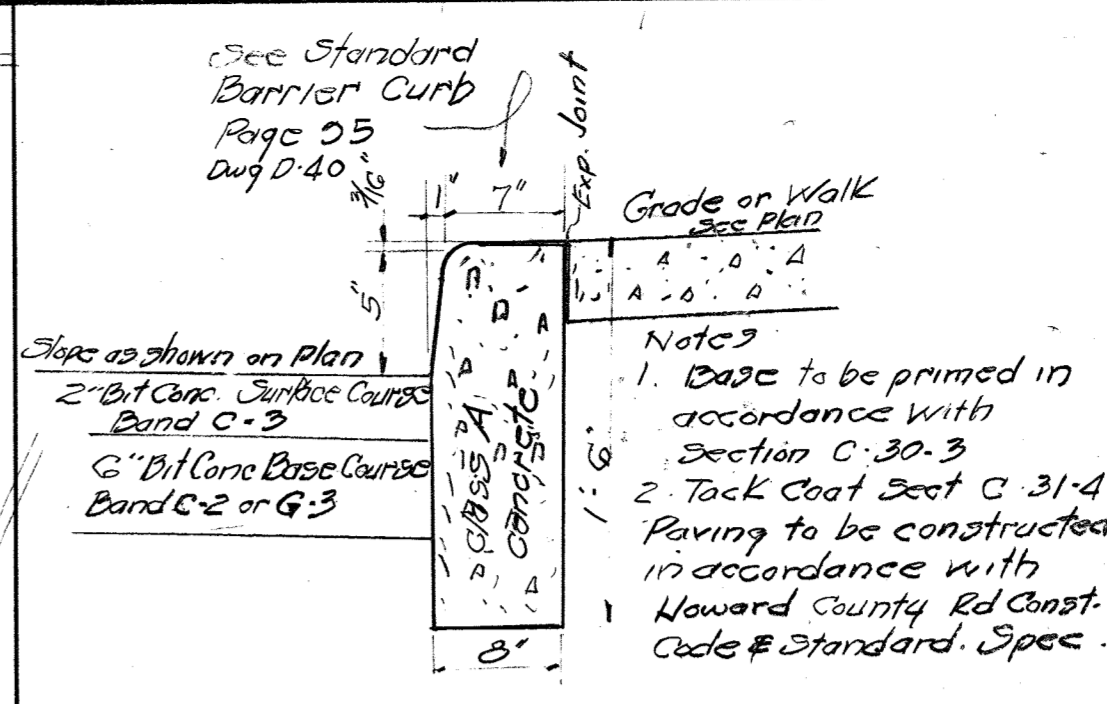 See Standard
Barrier Curb
Page 95
Dwg D-40
3/16"
1"
7"
Exp. Joint
Grade or Walk
see Plan
5"
Slope as shown on Plan
2" Bit Conc. Surface Course
Band C-3
6" Bit Conc Base Course
Band C-2 or G-3
Class A
Concrete
1'-6"
8"
Notes
1. Base to be primed in
accordance with
Section C-30-3
2. Tack Coat Sect C-31-4
Paving to be constructed
in accordance with
Howard County Rd Const.
Code & Standard. Spec.